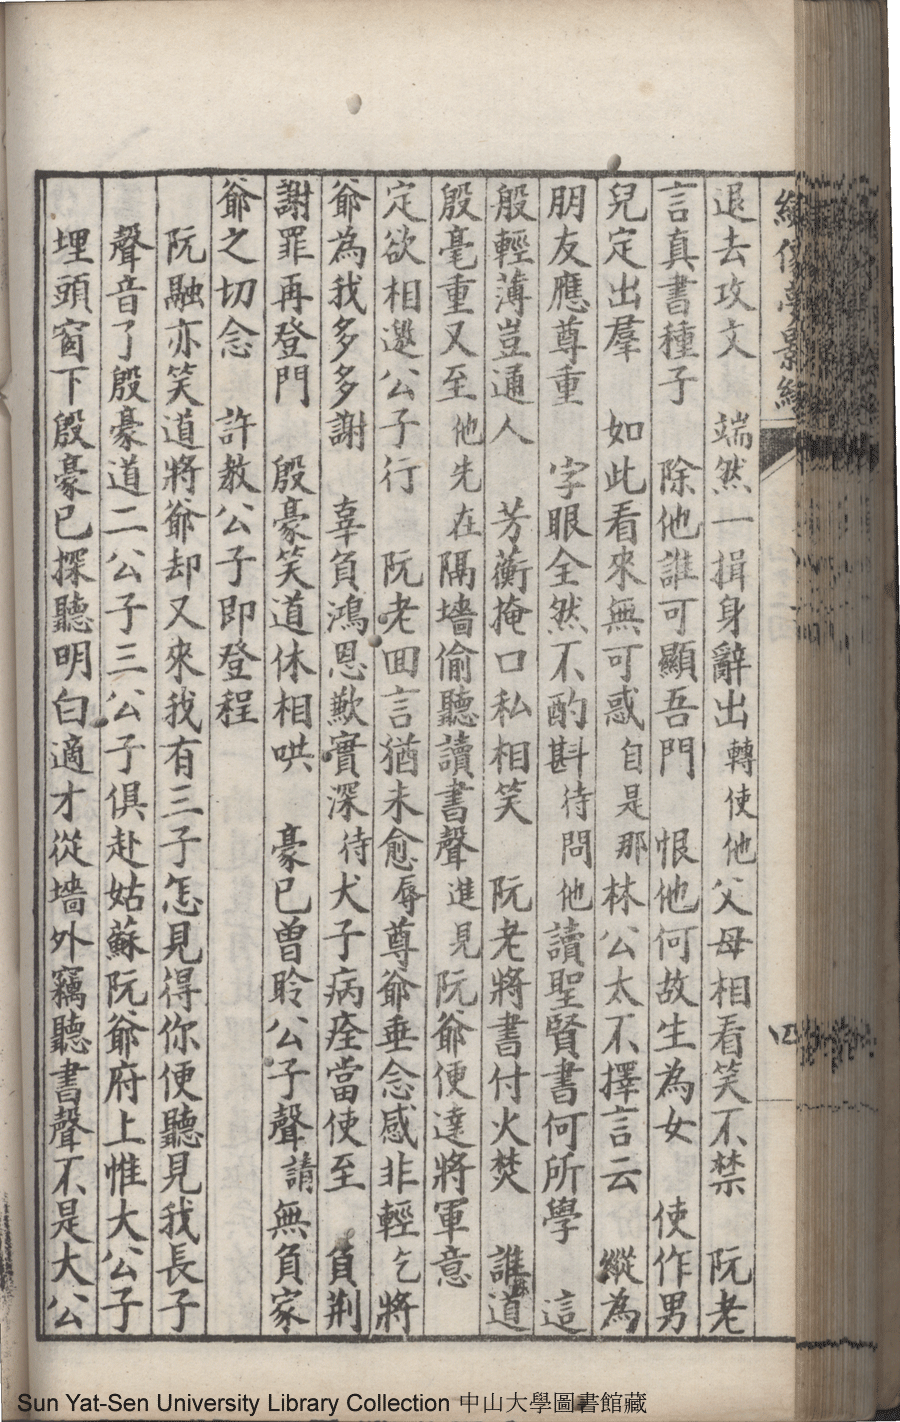 繡像夢影緣
四
退去攻文　端然一揖身辭出轉使他父母相看笑不禁　阮老
言真書種子　除他誰可顯吾門　恨他何故生為女　使作男
兒定出羣　如此看來無可惑自是那林公太不擇言云　縱為
朋友應尊重　字眼全然不酌斟待問他讀聖賢書何所學　這
般輕薄豈通人　芳蘅掩口私相笑　阮老將書付火焚　誰道
殷毫重又至他先在隔墻偷聽讀書聲進見阮爺便達將軍意
定欲相邀公子行　阮老回言猶未愈辱尊爺垂念感非輕乞將
爺為我多多謝　辜負鴻恩歉實深待犬子病痊當使至　負荆
謝罪再登門　殷豪笑道休相哄　豪已曾聆公子聲請無負家
爺之切念　許教公子即登程
阮融亦笑道將爺却又來我有三子怎見得你便聽見我長子
聲音了殷豪道二公子三公子俱赴姑蘇阮爺府上惟大公子
埋頭窗下殷豪已探聽明白適才從墻外竊聽書聲不是大公
Sun Yat-Sen University Library Collection 中山大學圖書館藏